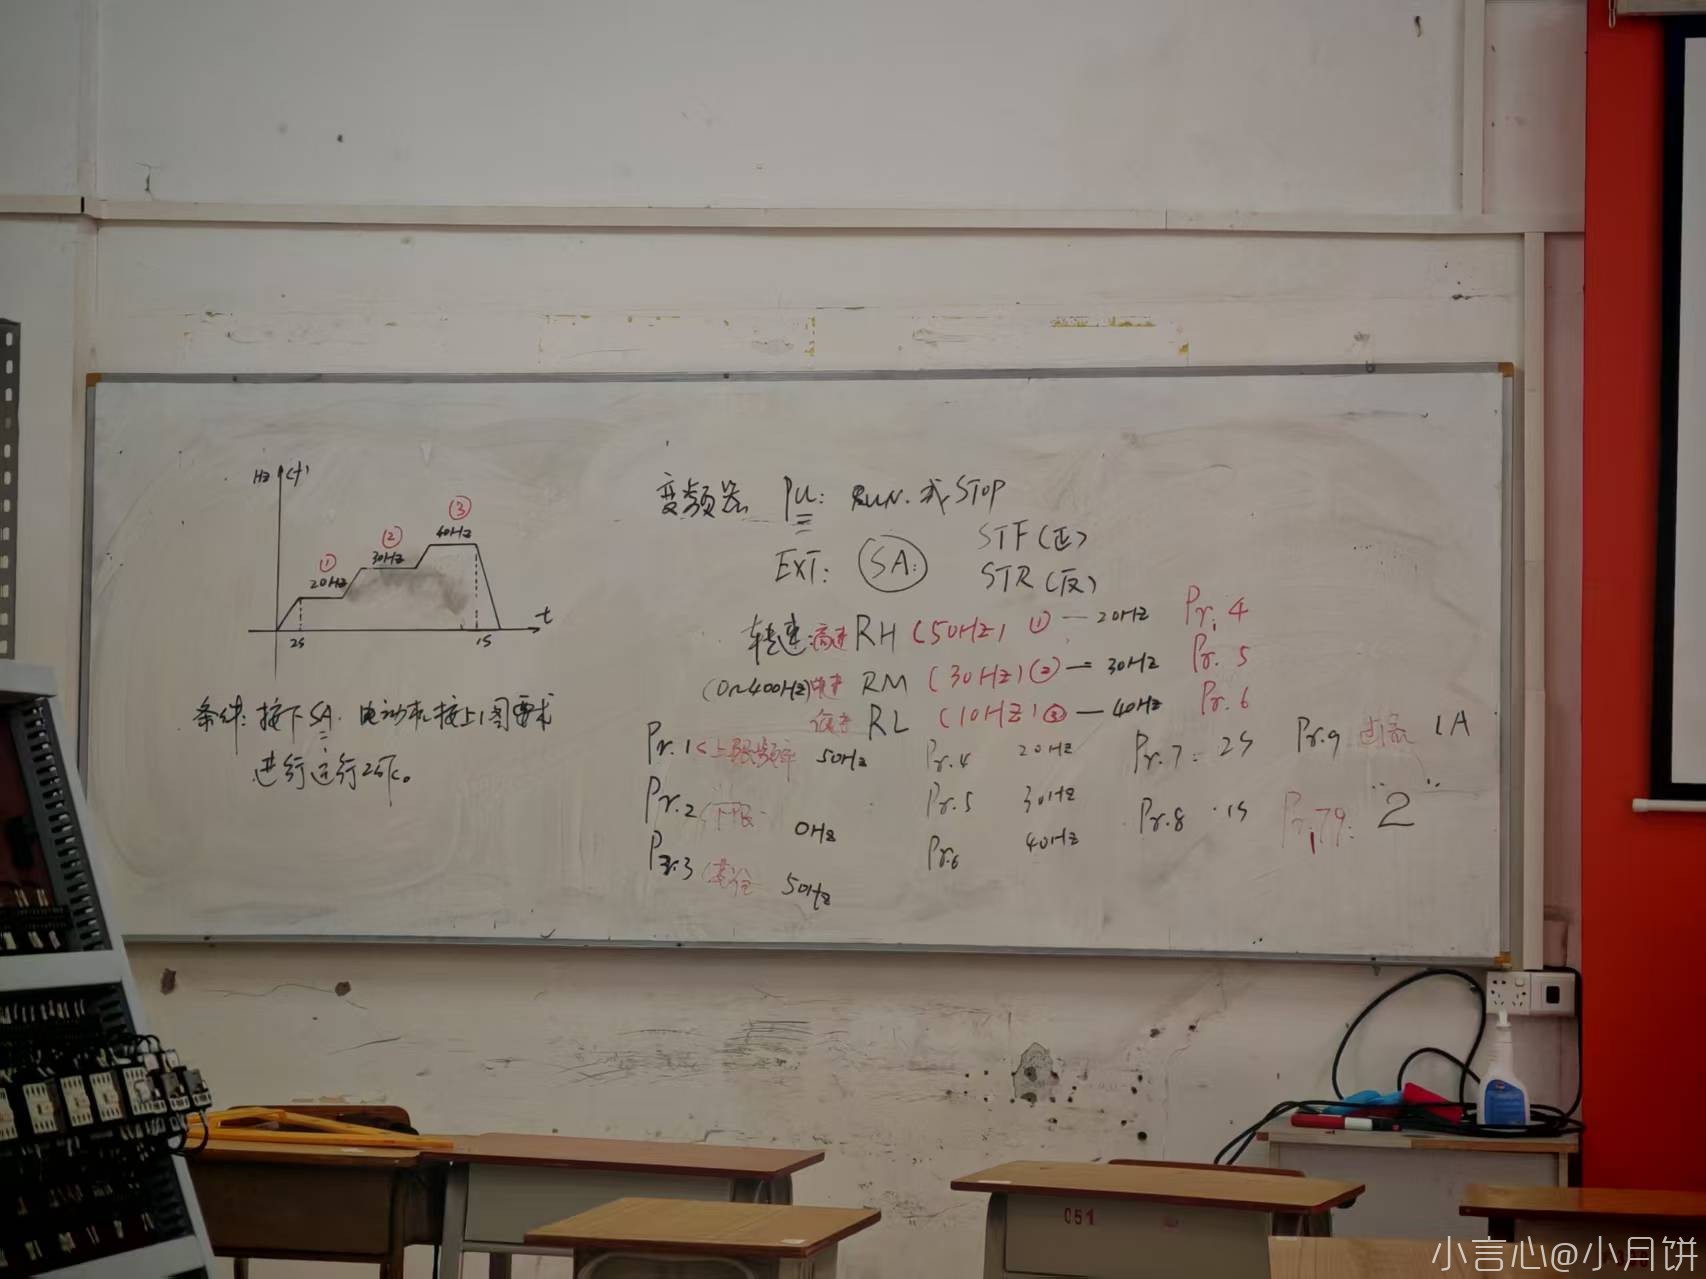 Hz (f)
① 20Hz
② 30Hz
③ 40Hz
2S
1S
t
条件:按下SA.电动机按上图要求
进行运行
变频器 PU: RUN.或STOP
EXT: SA: STF(正)
STR(反)
转速:高速 RH (50Hz) ① — 20Hz Pr.4
(0~400Hz)中速 RM (30Hz)② — 30Hz Pr.5
低速 RL (10Hz)③ — 40Hz Pr.6
Pr.1<上限频率 50Hz Pr.4 20Hz Pr.7: 2S Pr.9 1A
Pr.2 (下限 0Hz Pr.5 30Hz Pr.8 1S Pr.79: 2
Pr.3 (基准 50Hz Pr.6 40Hz
051
小言心@小月饼